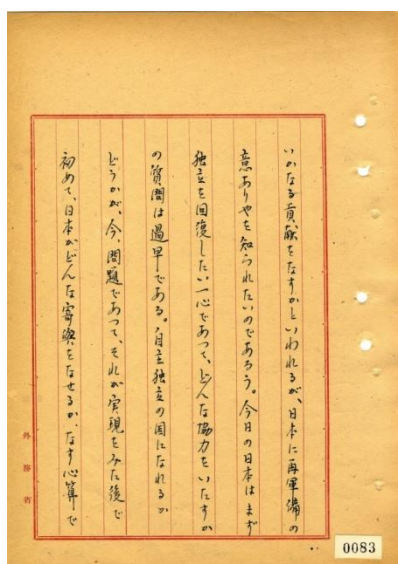 いかなる貢献をなすかといわれるが、日本に再軍備の
意ありやを知られたいのであろう。今日の日本はまず
独立を回復したい一心であって、どんな協力をいたすか
の質問は過早である。自主独立の国になれるか
どうかが、今、問題であって、それが実現をみた後で
初めて、日本がどんな寄与をなせるか、なす心算で
外務省
0083